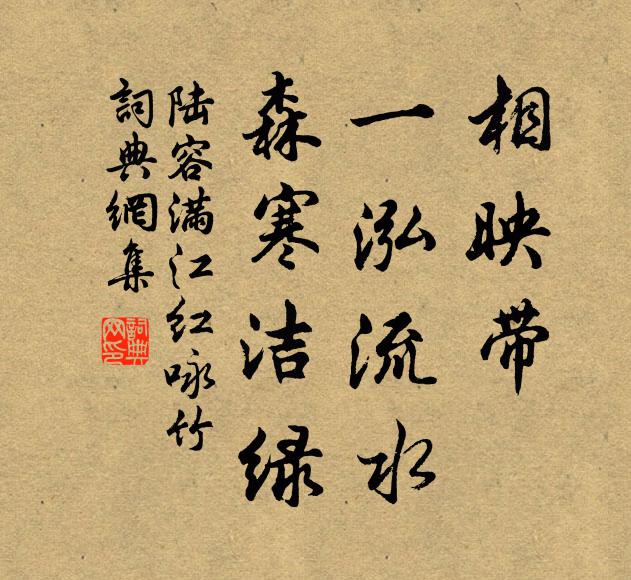 相映带
一泓流水
森寒洁绿
陆容满江红咏竹
詞典網集
詞典
网印